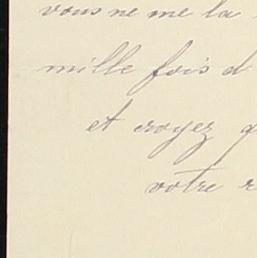 vous ne me la
mille fois d
et croyez q
votre r